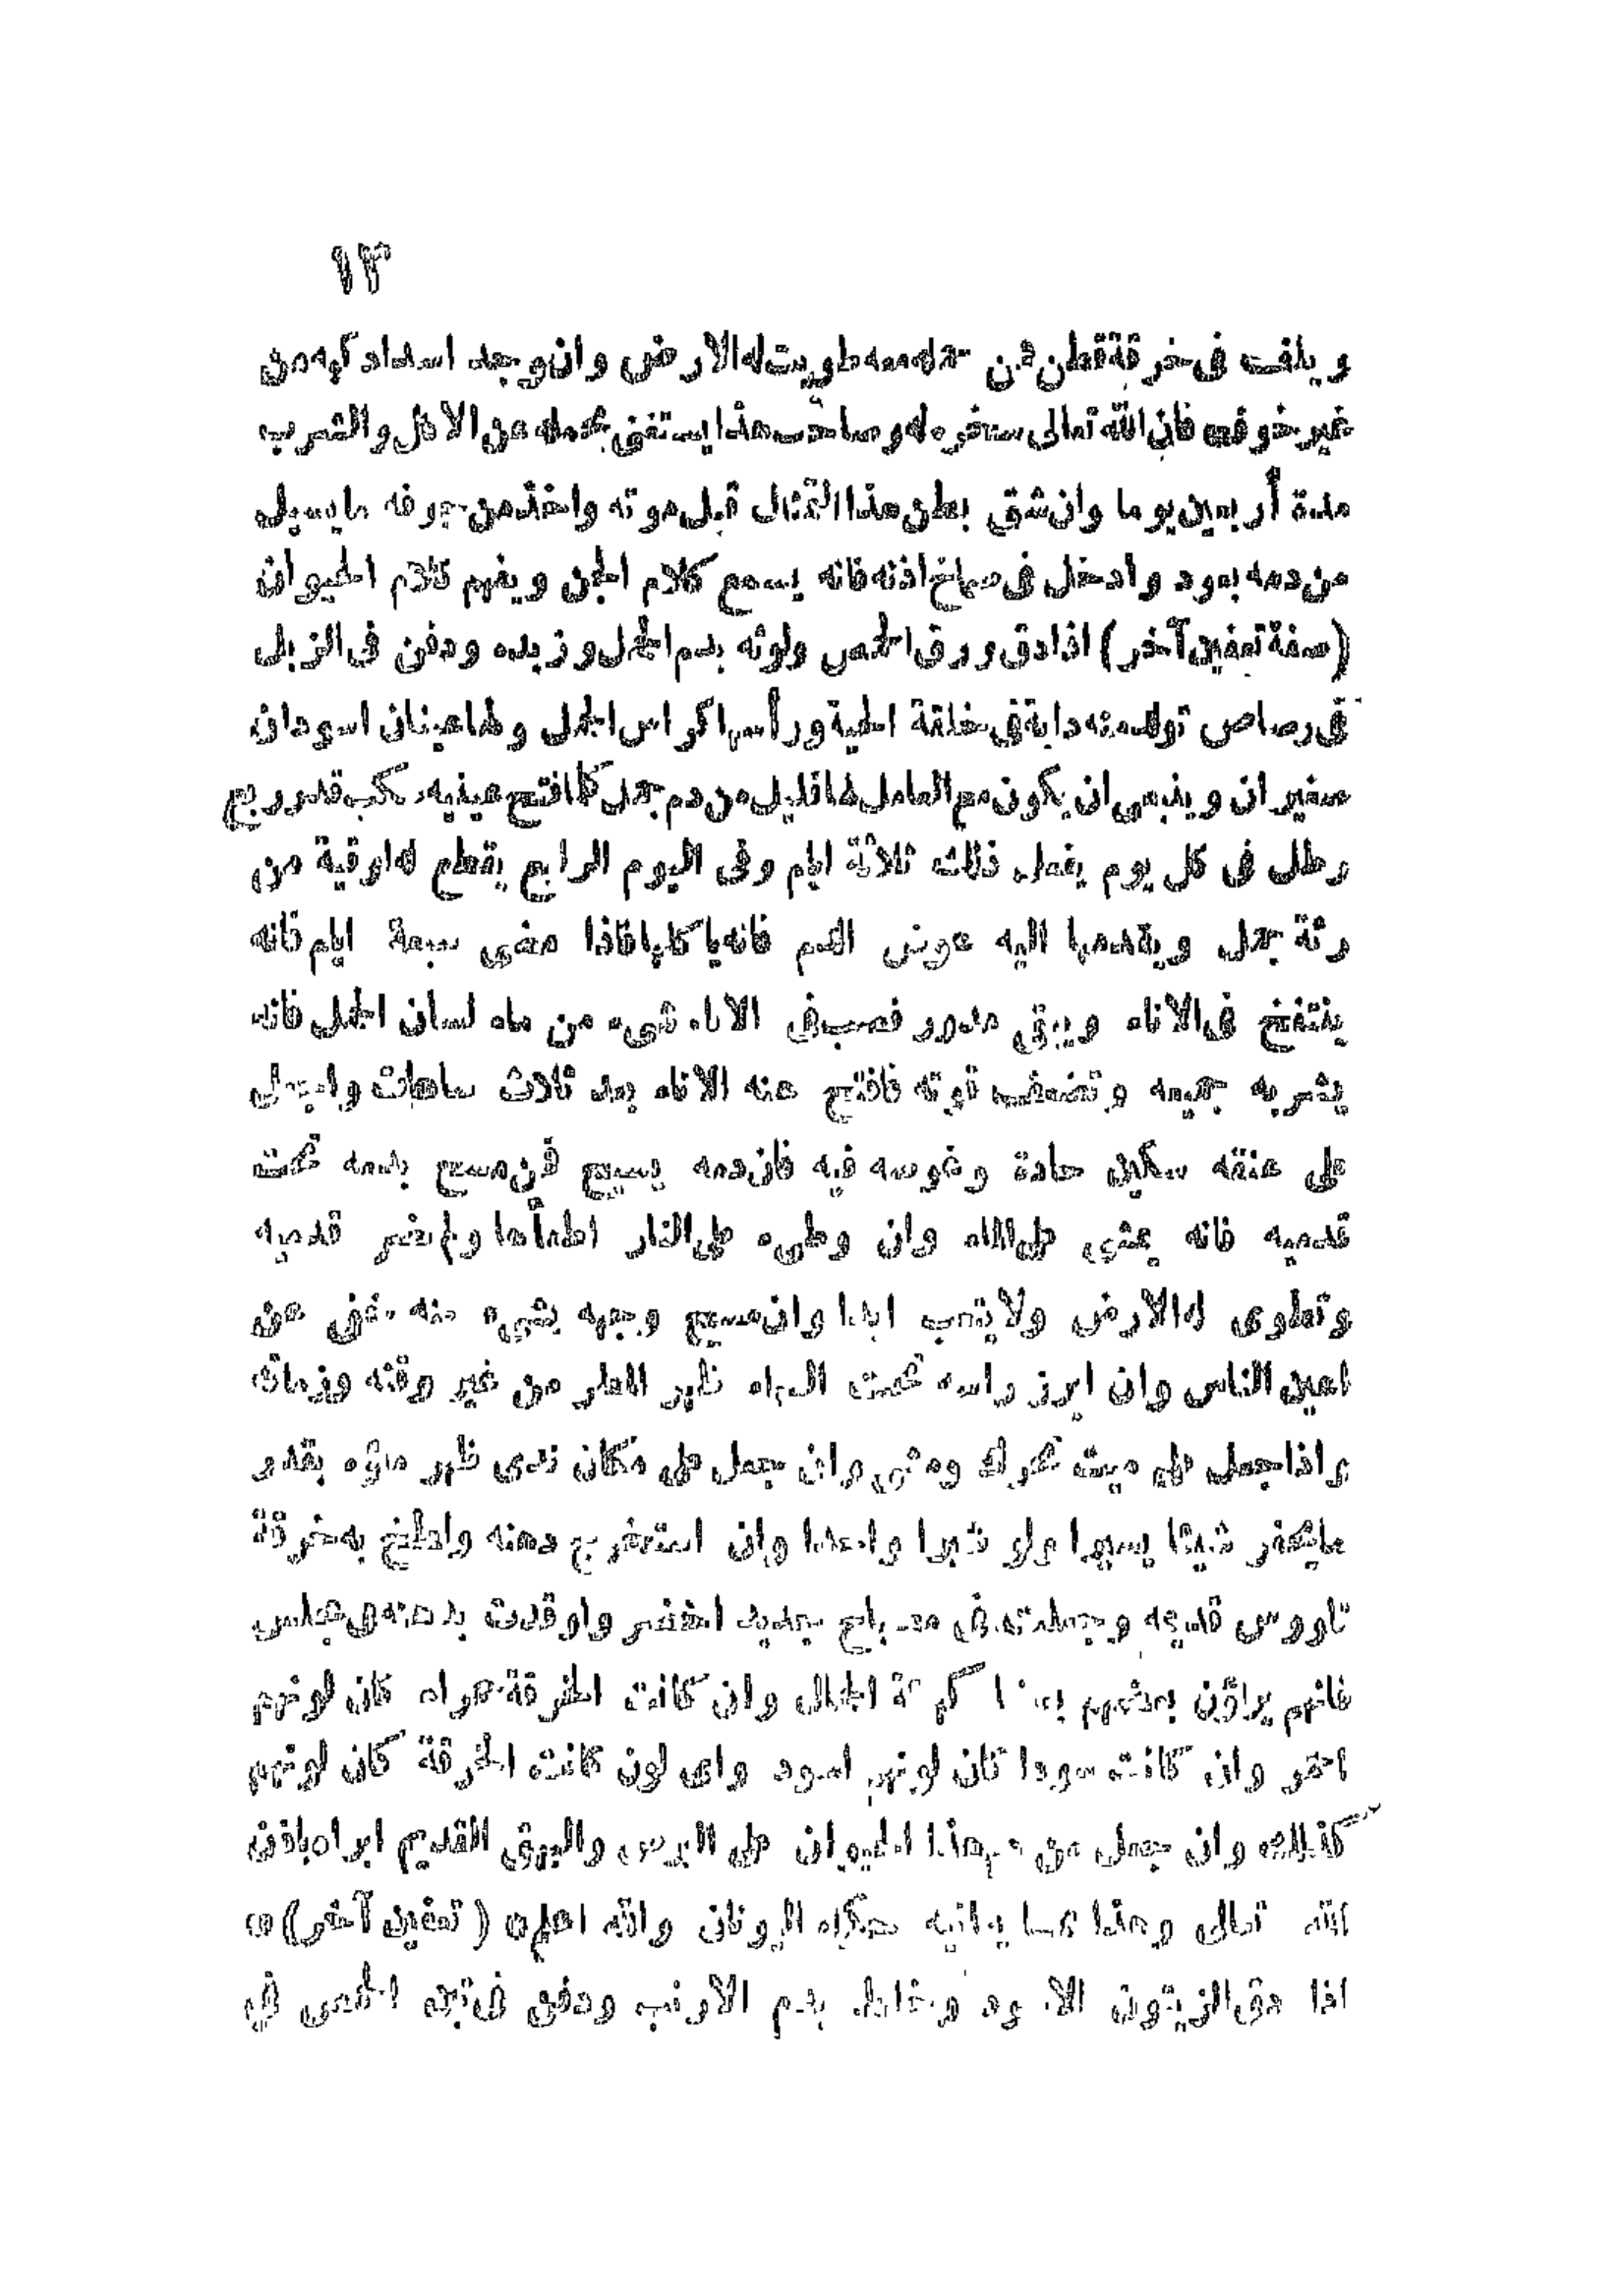 ١٣
ويلف فى خرقة قطن فمن حمله معه طويت له الارض وان وجد اسدا دكبه من
غير خوف فان الله تعالى سخره له وصاحب هذا يستغنى بحمله عن الاكل والشرب
مدة أربعين يوما وان شق بطن هذا التمثال قبل موته واخذ من جوفه ما يسيل
من دمه بعود وادخل فى صماخ اذنه فانه يسمع كلام الجن ويفهم كلام الحيوان
(صفة تعفين آخر) اذا دق ورق الحمص ولوثه بدم الجمل وزبده ودفن فى الزبل
فى رصاص تولد منه دابة فى خلقة الحية ورأسها كراس الجمل ولها عينان اسودان
صغيران وينبغى ان يكون مع العامل لها قليل من دم جمل كلما فتح عينيه سكب قدر ربع
رطل فى كل يوم يفعل ذلك ثلاثة ايام وفى اليوم الرابع يقطع له اوقية من
رئة جمل ويقدمها اليه عوض الدم فانه ياكلها فاذا مضى سبعة ايام فانه
ينتفخ فى الاناء ويبقى مدور فصب فى الاناء شىء من ماء لسان الحمل فانه
يشربه جميعه وتضعف قوته فافتح عنه الاناء بعد ثلاث ساعات واجعل
على عنقه سكين حادة وغوسه فيه فان دمه يسيح فمن مسح بدمه تحت
قدميه فانه يمشى على الماء وان وطىء على النار اطفأها ولم تضر قدميه
وتطوى له الارض ولا يتعب ابدا وان مسح وجهه بشىء منه خفى عن
اعين الناس وان ابرز راسه تحت السماء ظهر المطر من غير وقته وزمانه
واذا جعل على ميت تحرك ومشى وان جعل على مكان ندى ظهر ماؤه بقدر
ما يحفر شيئا يسيرا ولو شبرا واحدا وان استخرج دهنه ولطخ به خرقة
ناووس قديمه وجعلته فى مصباح جديد اخضر واوقدت بدهنه فى مجلس
فانهم يراؤن بعضهم بعضا كهيئة الجمال وان كانت الخرقة حمراء كان لونهم
احمر وان كانت سودا كان لونهم اسود واى لون كانت الخرقة كان لونهم
كذلك وان جعل من دم هذا الحيوان على البرص والبهق القديم ابراه باذن
الله تعالى وهذا مما يعانيه حكماء اليونان والله اعلم (تعفين آخر)
اذا دق الزيتون الاسود وخلط بدم الارنب ودفن فى الحمص فى